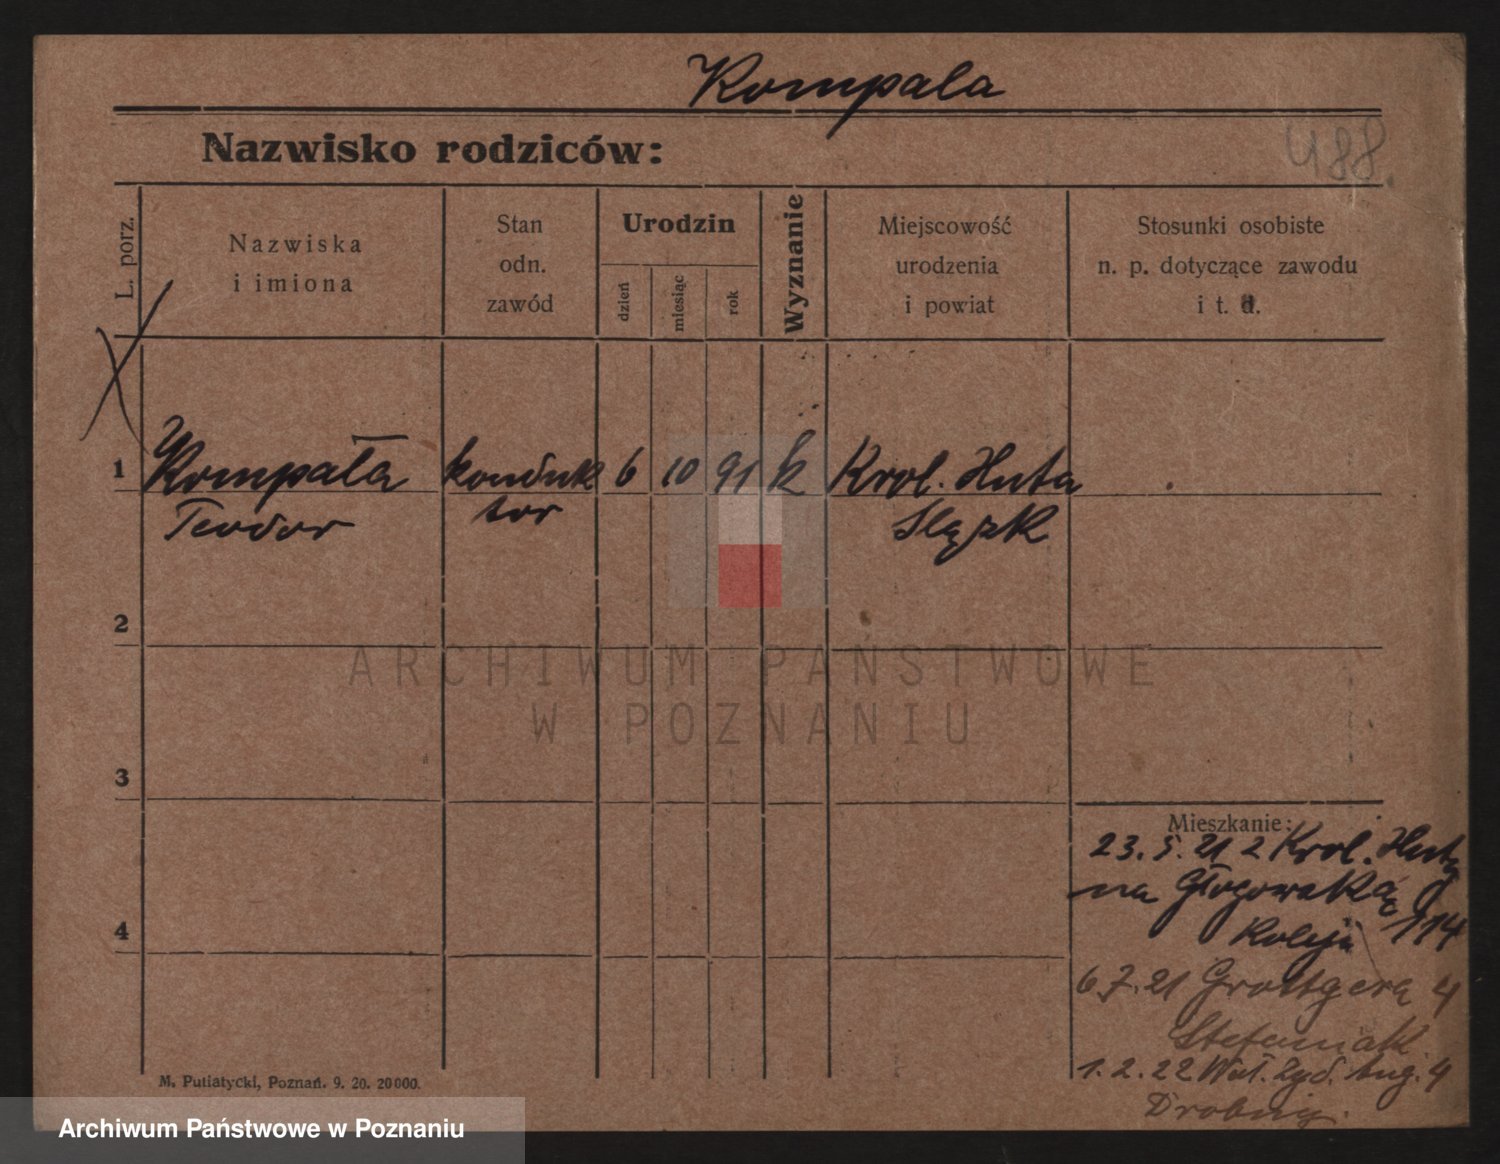 Kompala
Nazwisko rodziców:
488.
L. porz.
Nazwiska
i imiona
Stan
odn.
zawód
Urodzin
dzień
miesiąc
rok
Wyznanie
Miejscowość
urodzenia
i powiat
Stosunki osobiste
n. p. dotyczące zawodu
i t. d.
1 Kompała konduk 6 10 91 k Krol. Huta
Teodor tor Sląsk
2
ARCHIWUM PAŃSTWOWE
W POZNANIU
3
Mieszkanie:
23. 5. 21 z Krol. Huty
na Głogowską 114
4
6.7.21 Grottgera 4
Stefaniak
1. 2. 22 Wał. Zyg. Aug. 4
M. Putiatycki, Poznań. 9. 20. 20000.
Archiwum Państwowe w Poznaniu